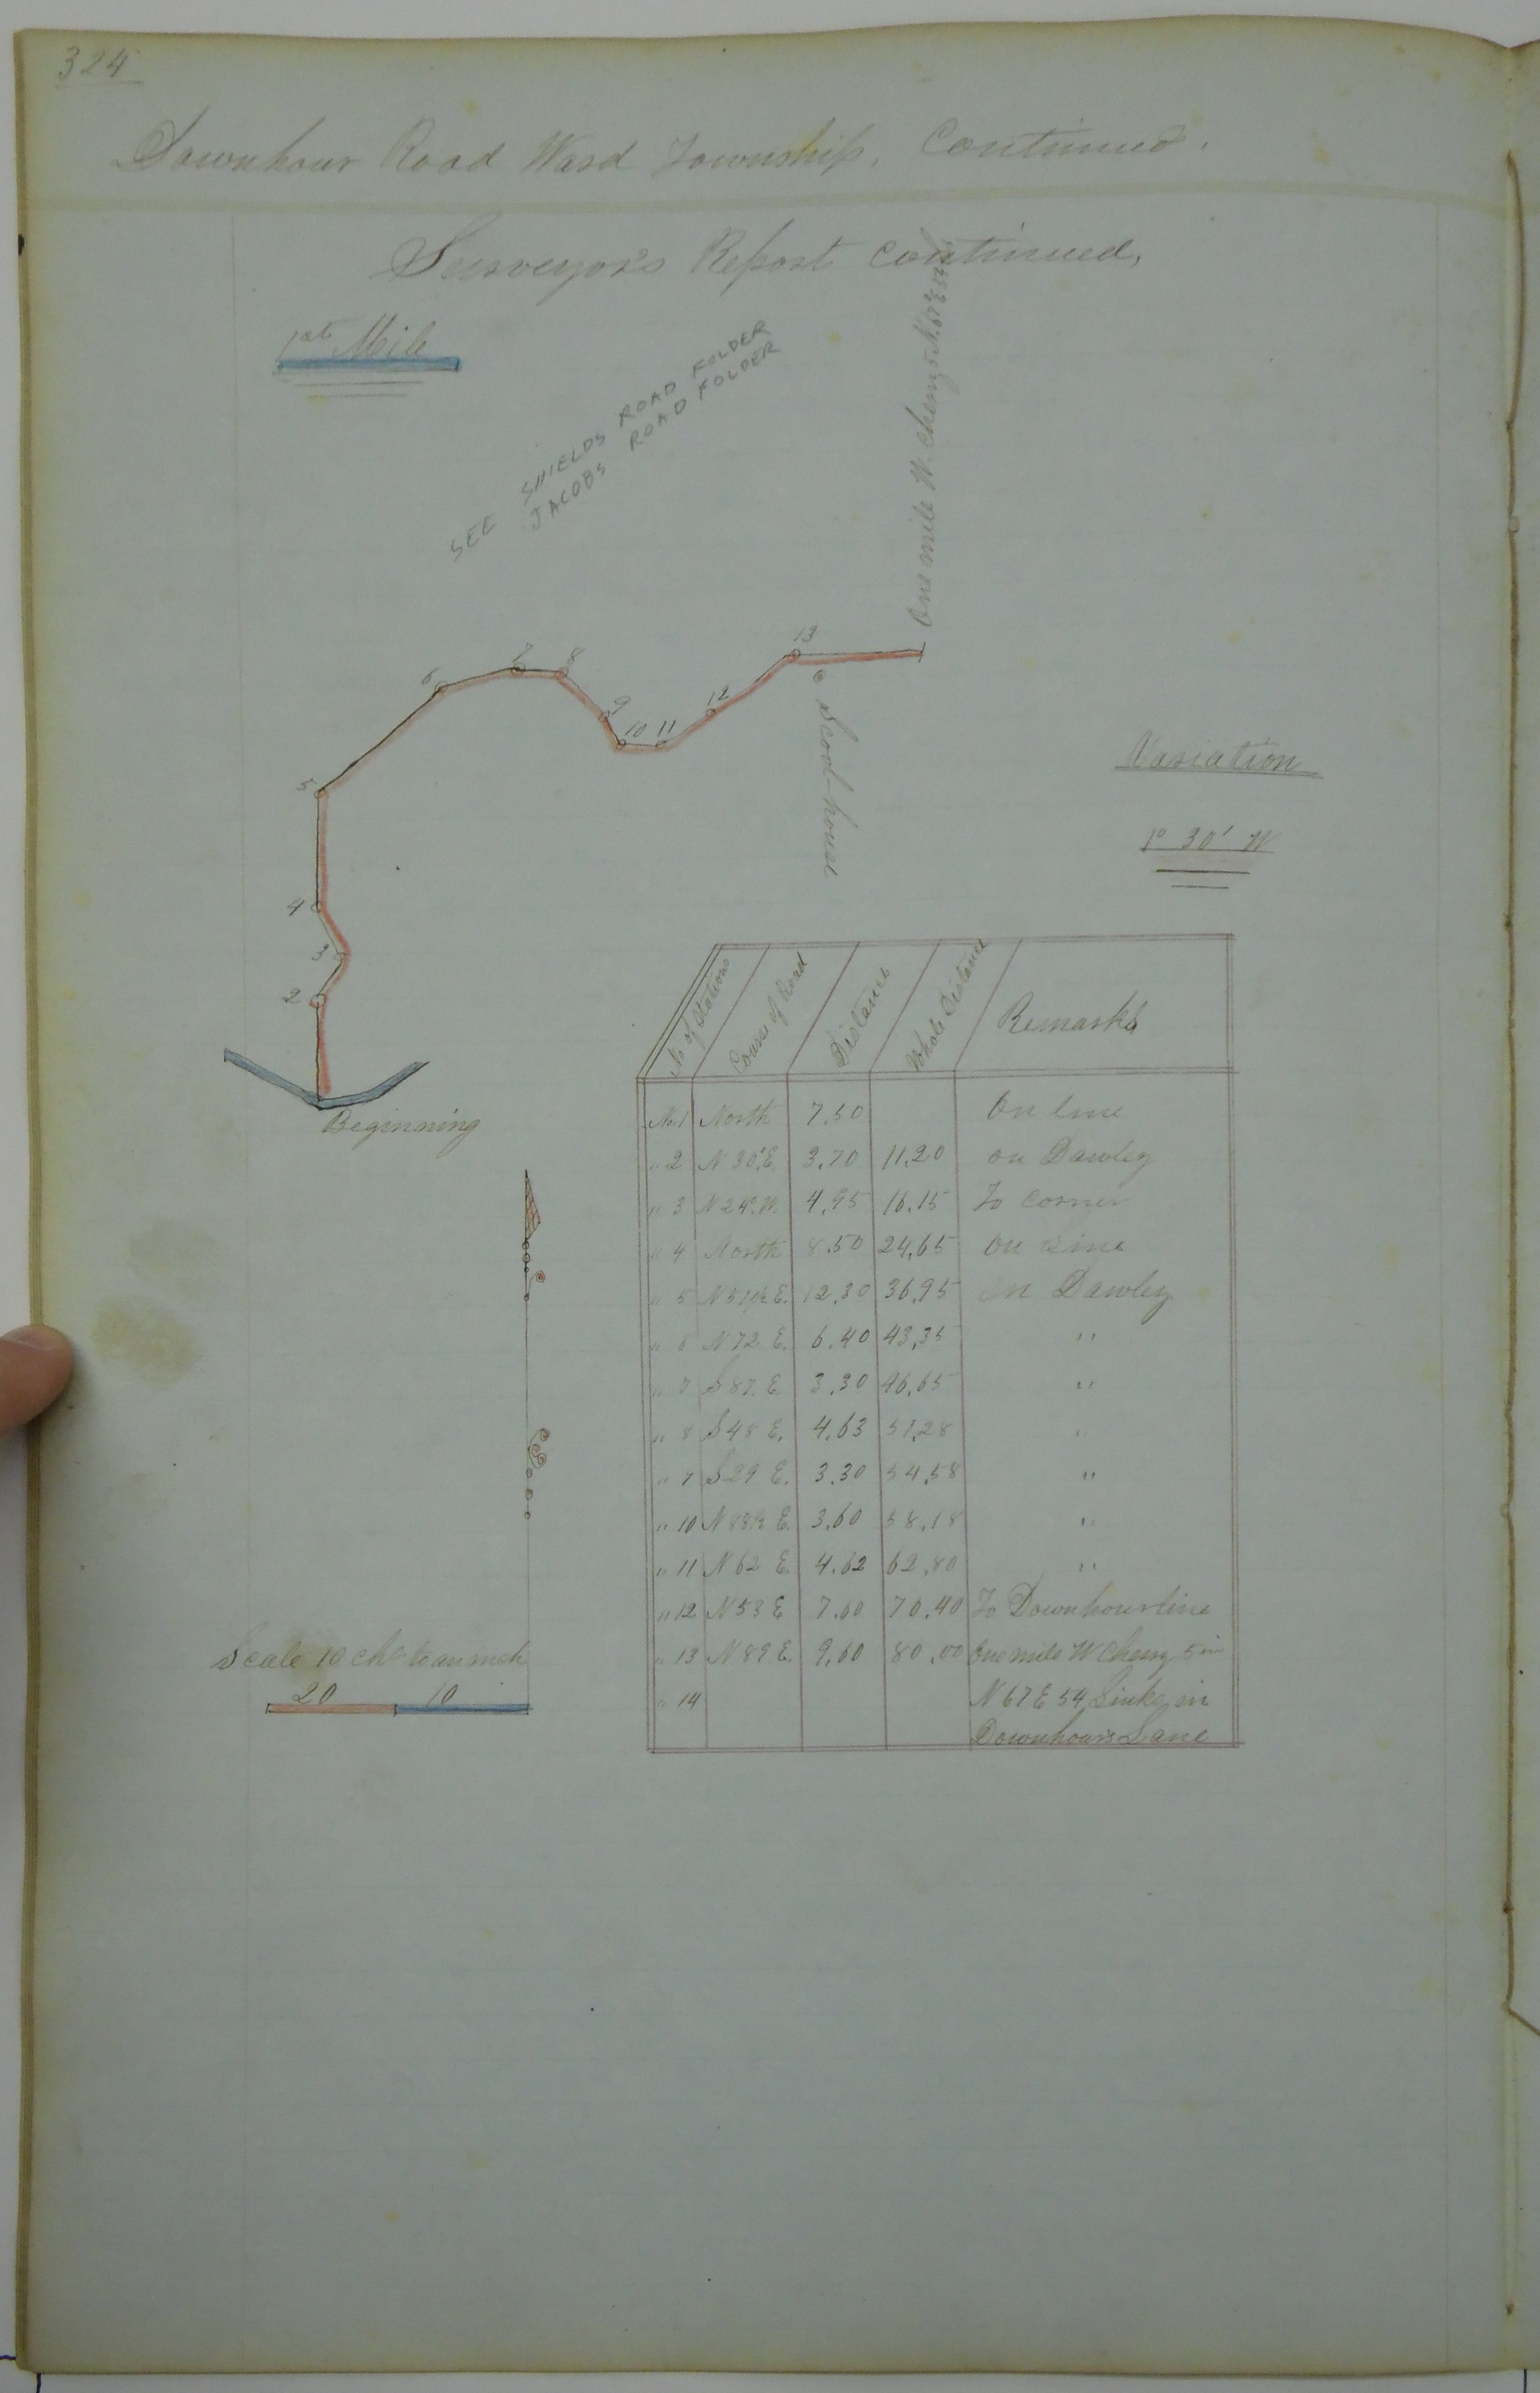 324
Downhour Road Ward Township. Continued.
Surveyor's Report Continued,
1st Mile
SEE SHIELDS ROAD FOLDER
JACOBS ROAD FOLDER
One mile W. Cherry 5 N.67 E
13
7
8
6
9
10
11
12
5
Scool-house
Variation
1° 30' W
4
3
2
Beginning
No of Stations Course of Road Distance Whole Distance Remarks
No.1 North 7.50 On line
" 2 N 30° E. 3.70 11.20 on Dawley
" 3 N 24° W. 4.95 16.15 To corner
" 4 North 8.50 24.65 On Line
" 5 N 51½ E. 12.30 36.95 on Dawley
" 6 N 72 E. 6.40 43.35 "
" 7 S 87. E. 3.30 46.65 "
" 8 S 48 E. 4.63 51.28 "
" 9 S 29 E. 3.30 54.58 "
" 10 N 88½ E. 3.60 58.18 "
" 11 N 62 E. 4.62 62.80 "
" 12 N 53 E 7.60 70.40 To Downhour line
" 13 N 89. E. 9.60 80.00 One mile W Cherry 5 in
" 14 N 67 E 54 Links in
Downhours Lane
Scale 10 chs to an inch
20 10